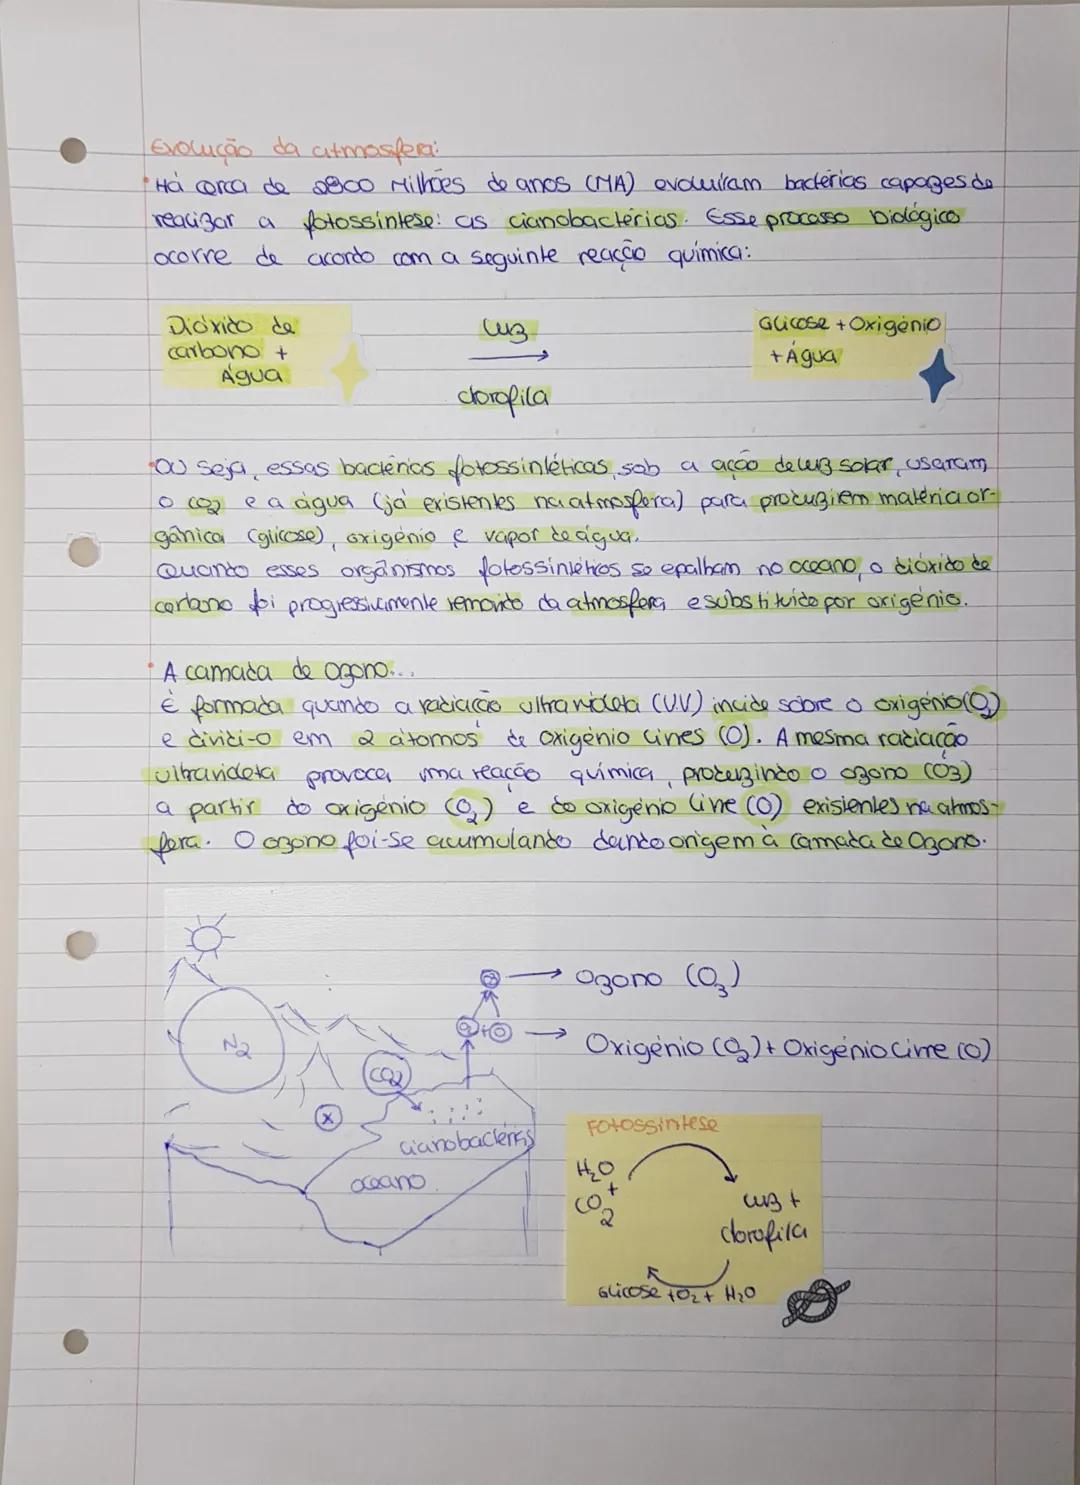 Evolução da atmosfera:
• Há cerca de 2800 Milhões de anos (MA) evoluíram bactérias capazes de
realizar a fotossíntese: as cianobactérias. Esse processo biológico
ocorre de acordo com a seguinte reacção química:
Dióxido de
carbono +
Água
luz
clorofila
Glicose + Oxigénio
+ Água
• Ou seja, essas bactérias fotossintéticas, sob a ação de luz solar, usaram
o CO2 e a água (já existentes na atmosfera) para produzirem matéria or-
gânica (glicose), oxigénio e vapor de água.
Quando esses orgânismos fotossintétios se epalham no oceano, o dióxido de
carbono foi progressivamente removido da atmosfera e substituido por oxigénio.
• A camada de ozono...
É formada quando a radiação ultravioleta (U.V) incide sobre o oxigénio (O2)
e dividi-o em 2 átomos de oxigénio livres (O). A mesma radiação
ultravioleta provoca uma reação química, produzindo o ozono (O3)
a partir do oxigénio (O2) e do oxigénio livre (O) existentes na atmos-
fera. O ozono foi-se acumulando dando origem à camada de Ozono.
O3 → Ozono (O3)
O2 + O → Oxigénio (O2) + Oxigénio livre (O)
N2
CO2
x
cianobactérias
oceano
Fotossíntese
H2O
+
CO2
luz +
clorofila
Glicose + O2 + H2O